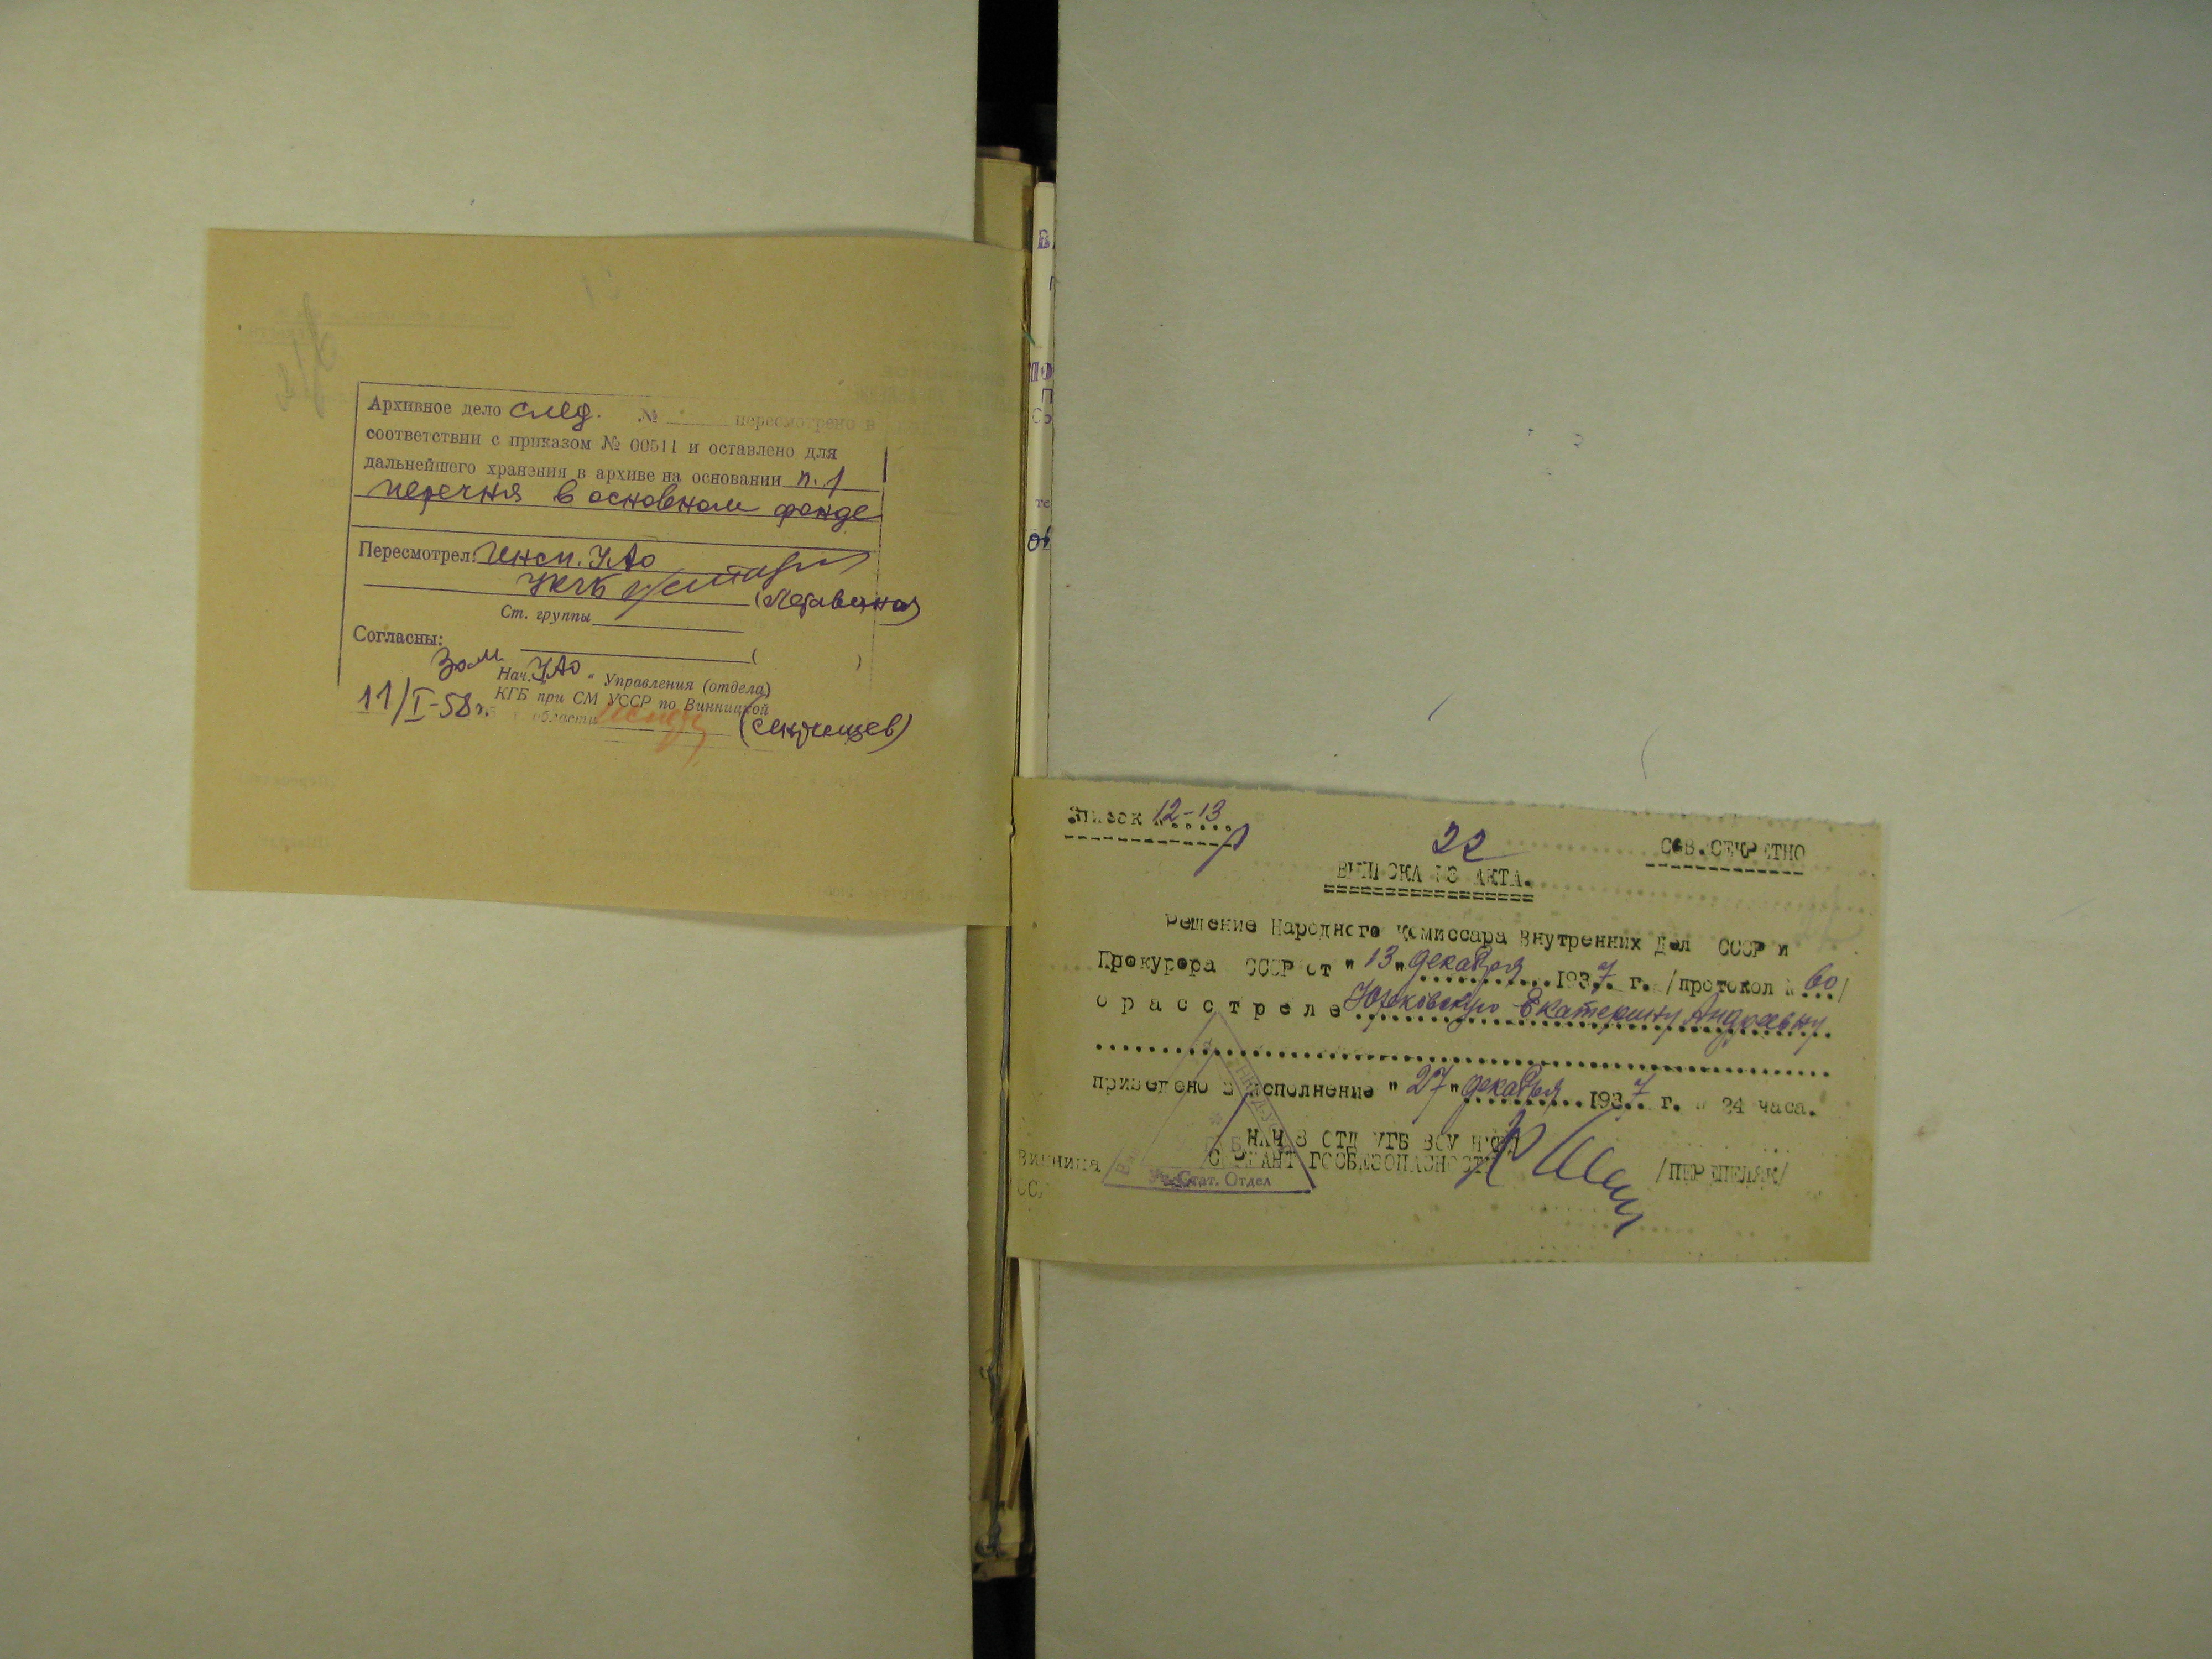 Архивное дело след. № пересмотрено в
соответствии с приказом № 00511 и оставлено для
дальнейшего хранения в архиве на основании п. 1
перечня в основном фонде
Пересмотрел: Инсп. УАО
УКГБ
Ст. группы
Согласны:
( )
Зам
Нач. УАО Управления (отдела)
КГБ при СМ УССР по Винницкой
11/I-58 г. области
Список 12-13
22
СОВ.СЕКРЕТНО
ВЫПИСКА ИЗ АКТА.
Решение Народного Комиссара Внутренних Дел СССР и
Прокурора СССР от "13" декабря 1937 г. /протокол № 60/
о р а с с т р е л е Юшковскую Екатерину Андреевну
приведено в исполнение "27" декабря 1937 г. в 24 часа.
НАЧ 8 ОТД УГБ ВОУ НКВД
СЕРЖАНТ ГОСБЕЗОПАСНОСТИ /ПЕРЕПЕЛЯК/
Винница
Стат. Отдел